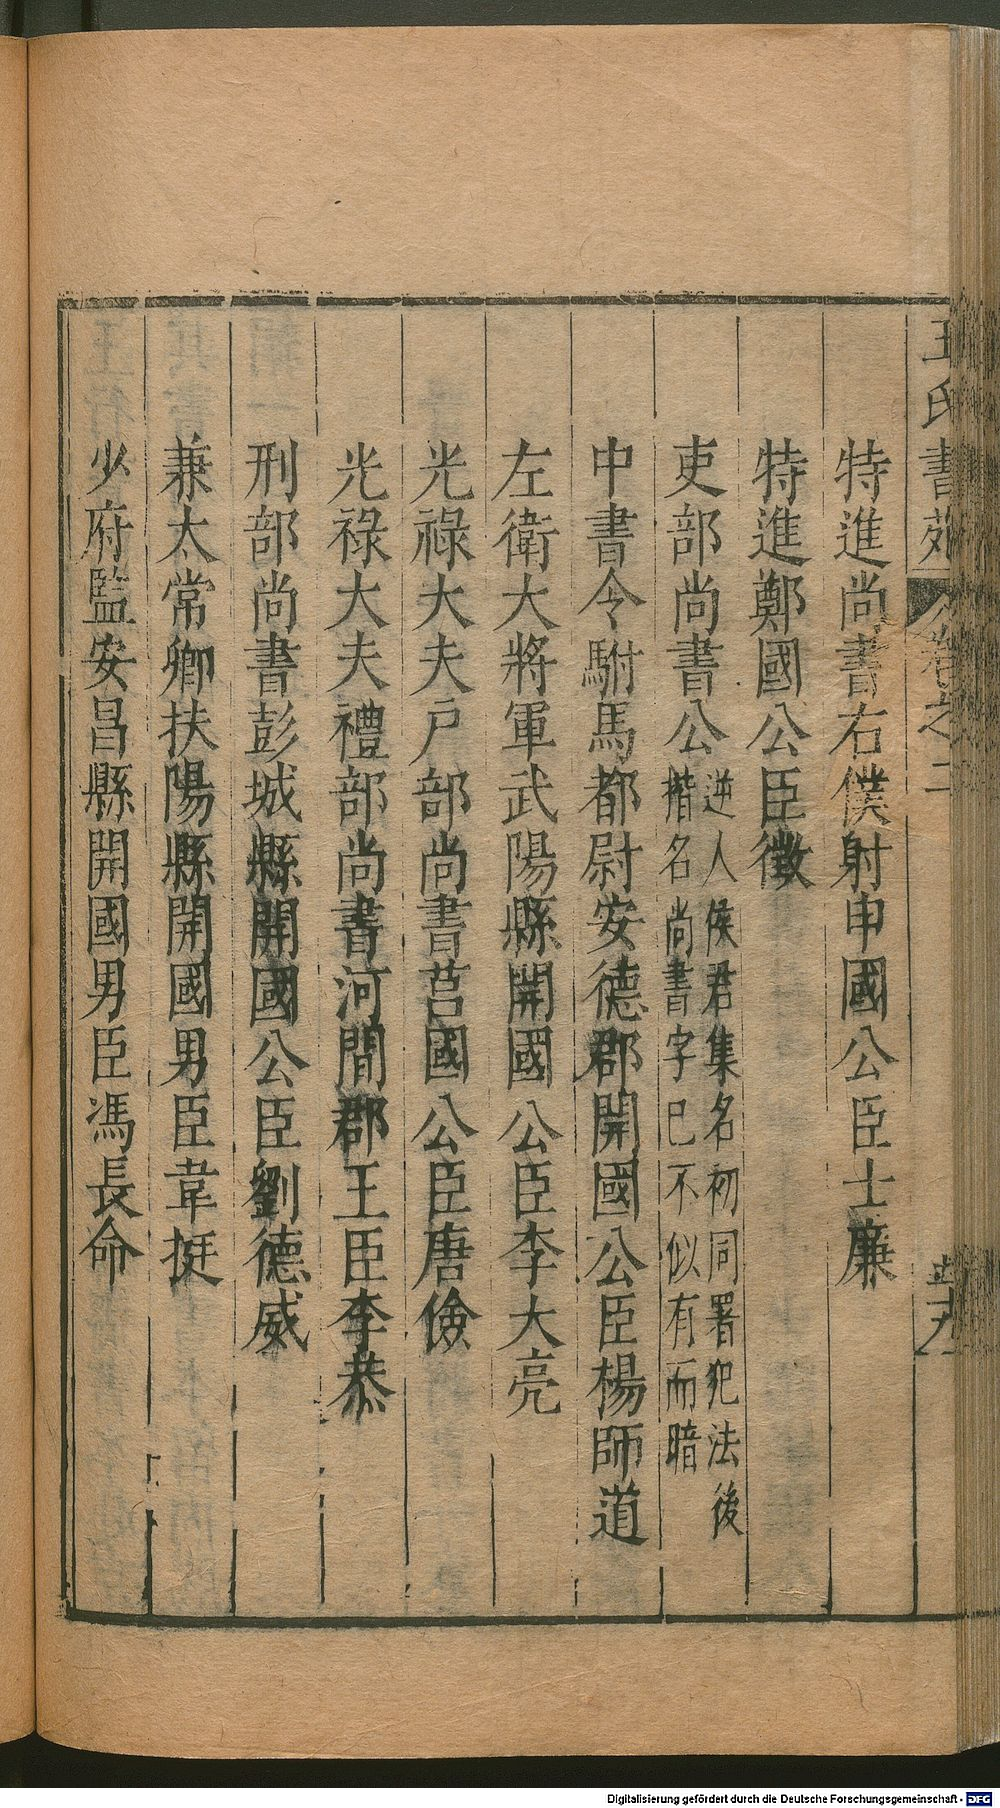 王氏書苑 卷之二
特進尚書右僕射申國公臣士廉
特進鄭國公臣徵
吏部尚書公逆人侯君集名初同署犯法後
揩名尚書字已不似有而暗
中書令駙馬都尉安德郡開國公臣楊師道
左衛大將軍武陽縣開國公臣李大亮
光祿大夫戶部尚書莒國公臣唐儉
光祿大夫禮部尚書河間郡王臣李恭
刑部尚書彭城縣開國公臣劉德威
兼太常卿扶陽縣開國男臣韋挺
少府監安昌縣開國男臣馮長命
Digitalisierung gefördert durch die Deutsche Forschungsgemeinschaft - DFG